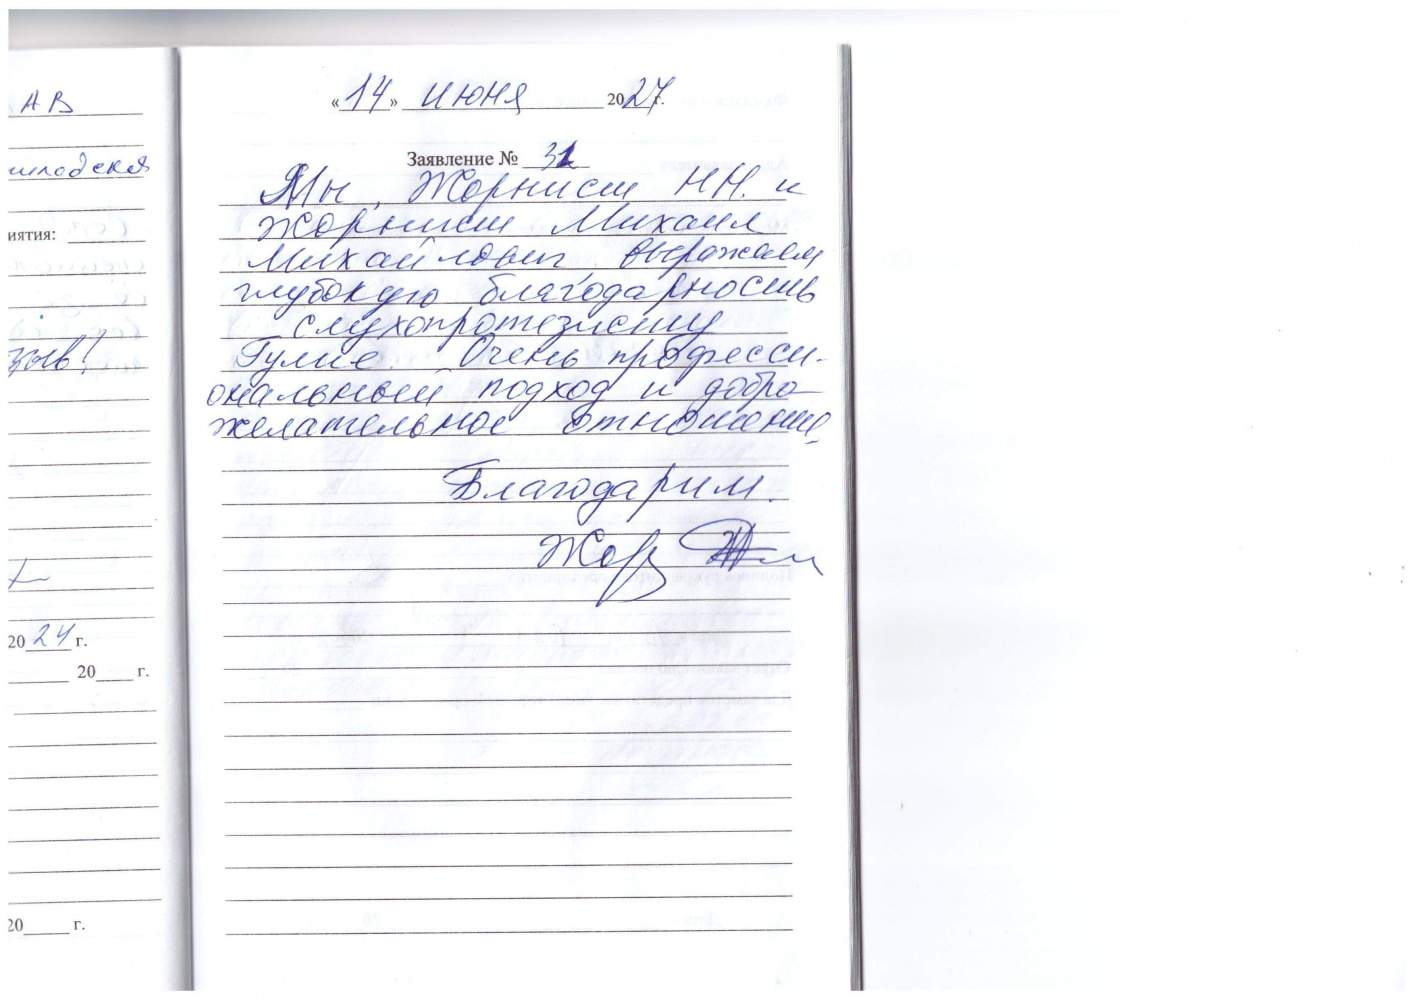 АВ
иятия:
2024 г.
20 г.
20 г.
«14» июня 2024г.
Заявление № 31
Мы, Жорнист Н.Н. и
Жорнист Михаил
Михайлович, выражаем
глубокую благодарность
слухопротезисту
Гулие. Очень професси-
ональный подход и добро-
желательное отношение.
Благодарим.